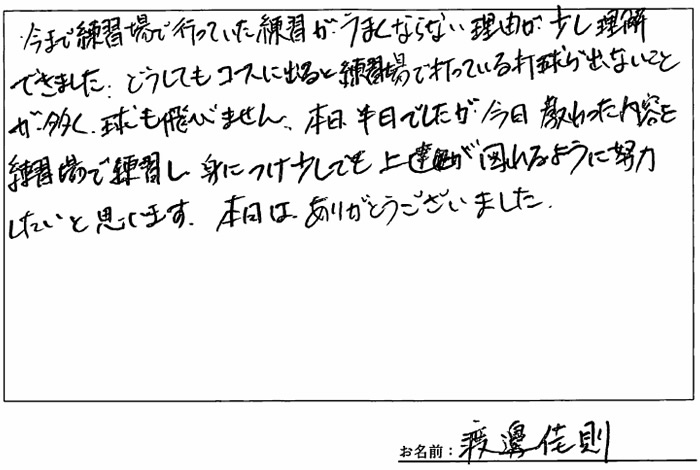 今まで練習場で行っていた練習が、うまくならない理由が少し理解
できました。どうしてもコースに出ると練習場で打っている打球が出ないこと
が多く、球も飛びません。本日半日でしたが今日教わった内容を
練習場で練習し、身につけ少しでも上達が図れるように努力
したいと思います。本日は、ありがとうございました。
お名前：渡邊佳則